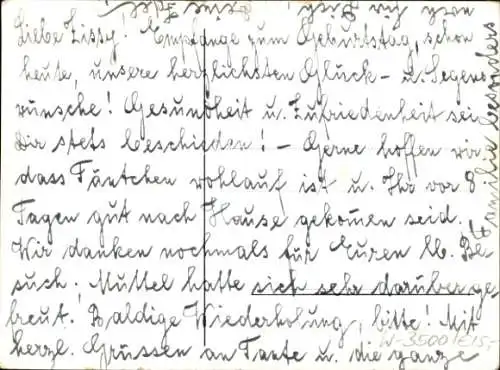 Liebe Zissy! Empfange zum Geburtstag, schon
heute, unsere herzlichsten Glück- u. Segens
wünsche! Gesundheit u. Zufriedenheit sei
Dir stets beschieden! - Gerne hoffen wir
dass Täntchen wohlauf ist u. Ihr vor 8
Tagen gut nach Hause gekomen seid.
Wir danken nochmals für Euren lb. Be
such. Muttel hatte sich sehr darüber ge
freut! Baldige Wiederholung, bitte! Mit
herzl. Grüssen an Tante u. die ganze
Familie besonders
W-3500 E15,-